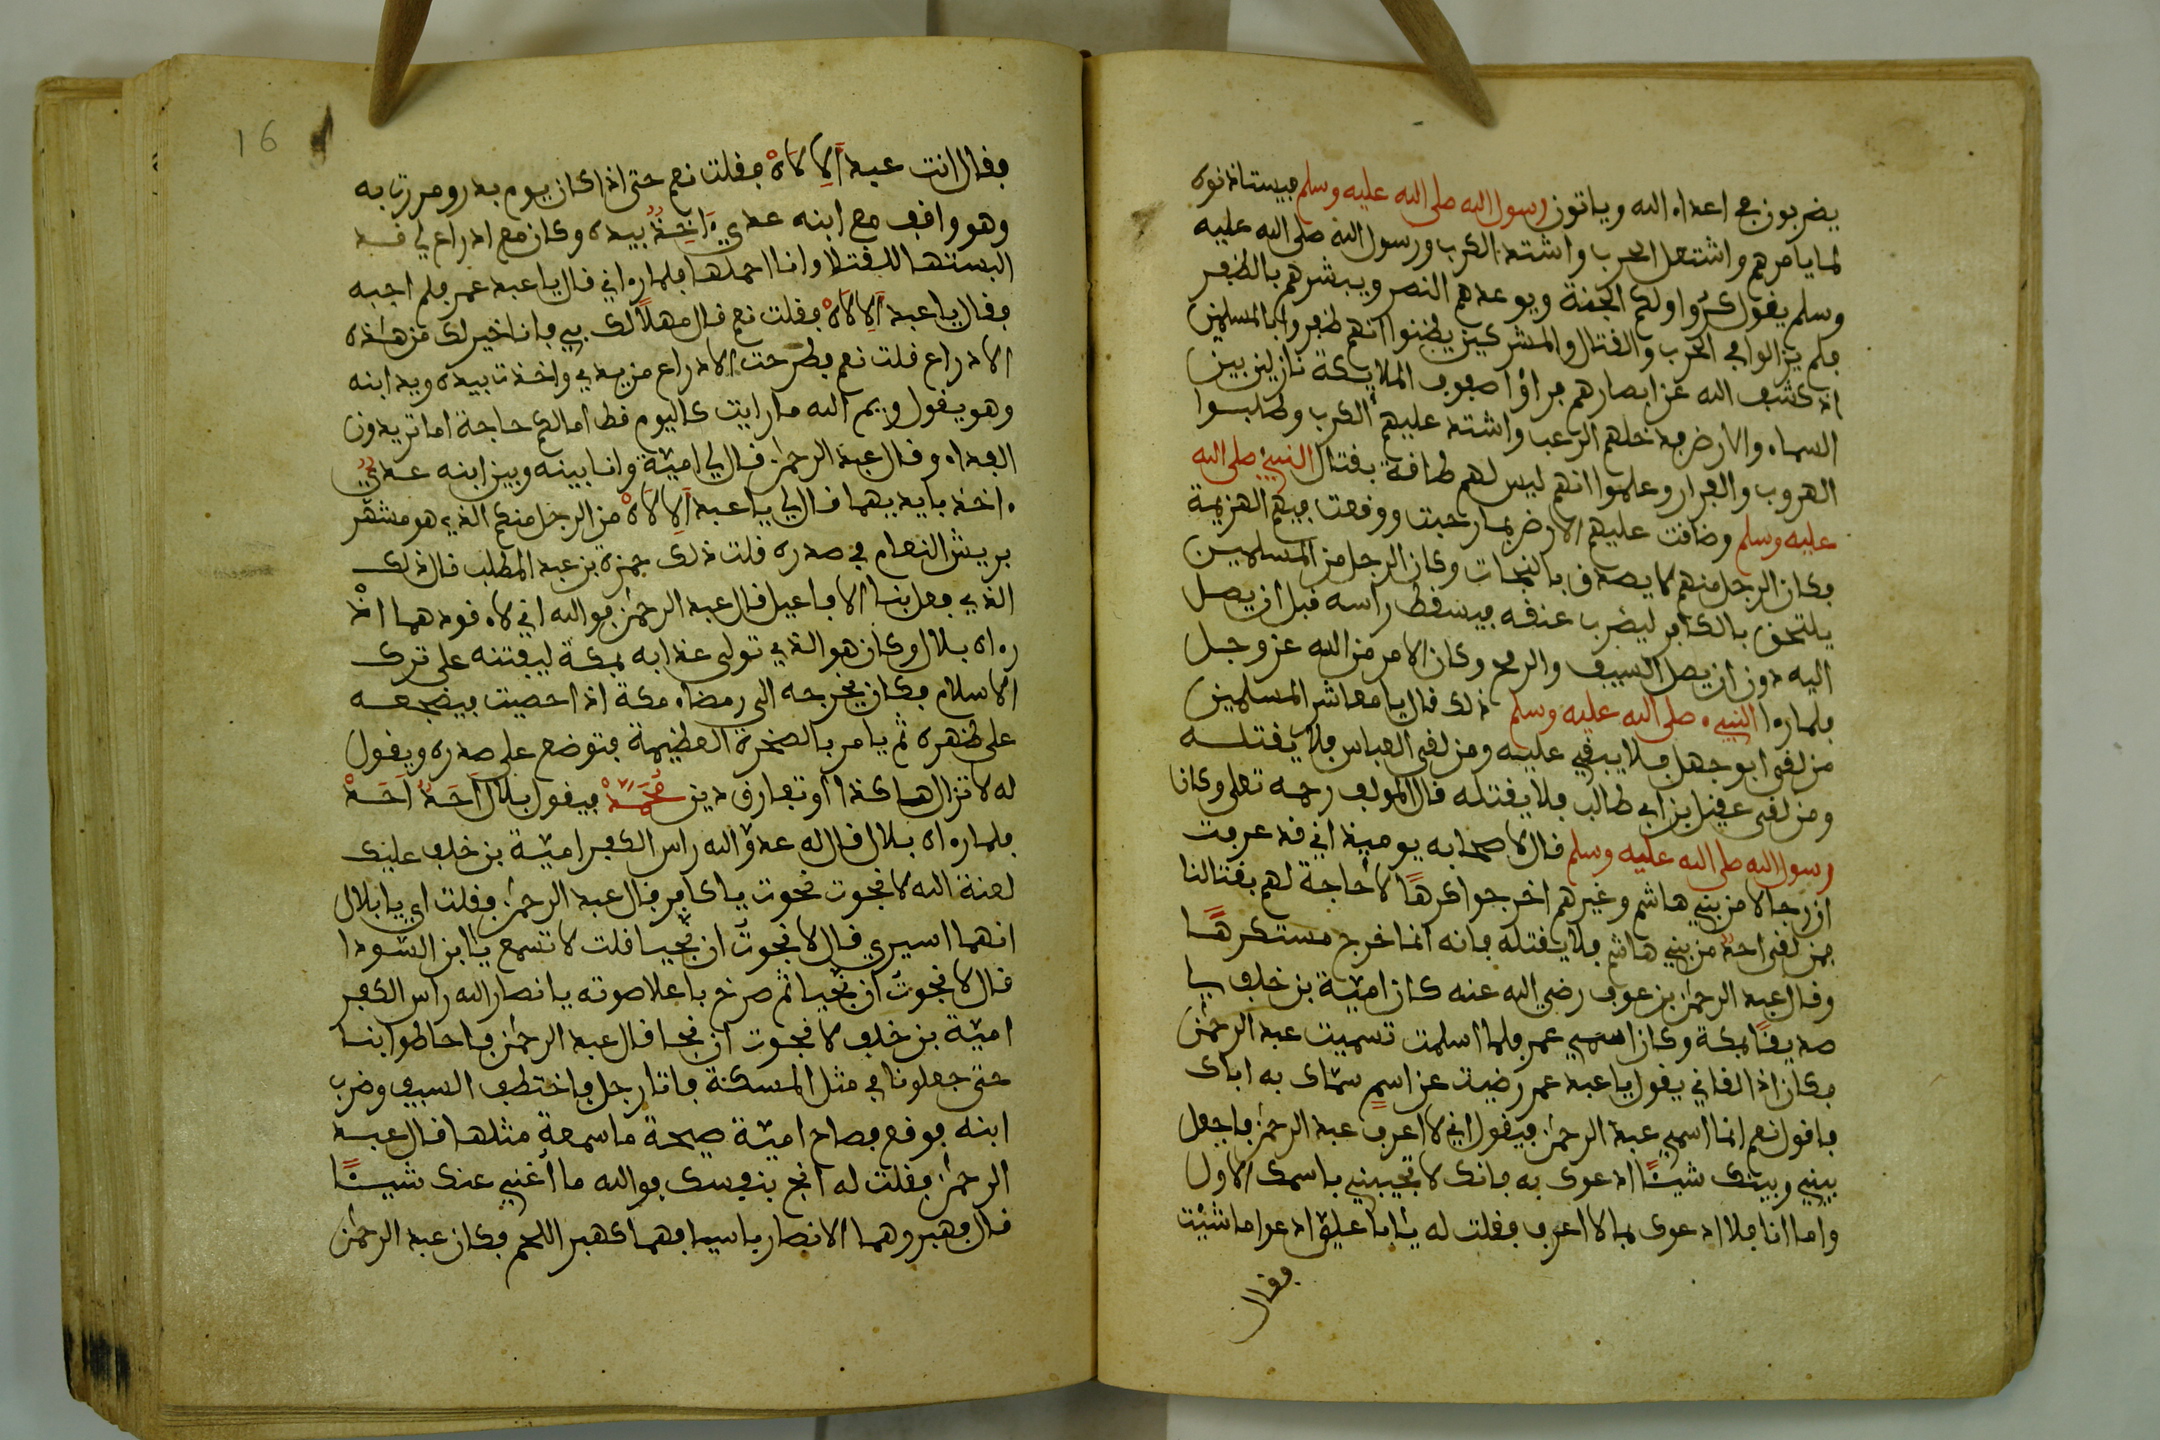 يضربون في اعداء الله وياتون رسول الله صلى الله عليه وسلم فيستاذنوه
لما يامرهم واشتعل الحرب واشتد الكرب ورسول الله صلى الله عليه
وسلم يقول كرّوا ولكم الجنة ويوعدهم النصر ويبشرهم بالظفر
فلم يزالوا في الحرب والقتال والمشركين يظنوا انهم ظفروا بالمسلمين
اذ كشف الله عن ابصارهم فراؤا صفوف الملايكة نازلين بين
السماء والارض فدخلهم الرعب واشتد عليهم الكرب وطلبوا
الهروب والفرار وعلموا انهم ليس لهم طاقة بقتال النبيء صلى الله
عليه وسلم وضاقت عليهم الارض بما رحبت ووقعت فيهم الهزيمة
فكان الرجل منهم لا يصدق بالنجات وكان الرجل من المسلمين
يلتحق بالكافر ليضرب عنقه فيسقط راسه قبل ان يصل
اليه دون ان يصل السيف والرمح وكان الامر من الله عز وجل
فلما رءا النبيء صلى الله عليه وسلم ذلك قال يا معاشر المسلمين
من لقوا ابو جهل فلا يبقي عليه ومن لقى العباس فلا يقتله
ومن لقى عقيل بن ابي طالب فلا يقتله قال المولف رحمه تعلى وكان
رسول الله صلى الله عليه وسلم قال لاصحابه يوميذ اني قد عرفت
ان رجالا من بني هاشم وغيرهم اخرجوا كرهًا لا حاجة لهم بقتالنا
فمن لقى احدٌ من بني هاشم فلا يقتله فانه انما خرج مستكرهًا
وقال عبد الرحمن بن عوف رضي الله عنه كان اميّة بن خلف لي
صديقًا بمكة وكان اسمي عمر فلما اسلمت تسميت عبد الرحمن
فكان اذا لقاني يقول يا عبد عمر رضيت عن اسم سمّاك به اباك
فاقول نعم انما اسمي عبد الرحمن فيقول اني لا اعرف عبد الرحمن فاجعل
بيني وبينك شيئًا ادعوك به فانك لا تجيبني باسمك الاول
واما انا فلا ادعوك بما لا اعرف فقلت له يا ابا عليّ ادعوا ما شئت
فقال
16
فقال انت عبد الِالَاهْ فقلت نعم حتى اذا كان يوم بدر ومررت به
وهو واقف مع ابنه عدي ءَاخِذٌ بيده وكان مع ادراع لي قد
البستها للقتلا وانا احملها فلما رءاني قال يا عبد عمر فلم اجبه
فقال يا عبد الِالَاهْ فقلت نعم قال مهلًا لك بي فانا خير لك من هذه
الادراع قلت نعم فطرحت الادراع من يدي واخذت بيده ويد ابنه
وهو يقول ويم الله ما رايت كاليوم قط امالكم حاجة اما تريدون
الفداء وقال عبد الرحمن قال لي اميّة وانا بينه وبين ابنه عديٌّ
ءاخذ بايديهما قال لي يا عبد الِالَاهْ من الرجل منكم الذي هو مشهّر
بريش النعام في صدره قلت ذلك حمزة بن عبد المطلب قال ذلك
الذي فعل بنا الافاعيل قال عبد الرحمن فوالله اني لا قودهما اذْ
رءاه بلال وكان هو الذي تولى عذابه بمكة ليفتنه على ترك
الاسلام فكان يخرجه الى رمضاء مكة اذا احصيت فيضجعه
على ظهره ثم يامر بالصخرة العظيمة فتوضع على صدره ويقول
له لا تزال هاكذا او تفارق دين مُحَمَّدْ فيقول بلال اَحَدٌ اَحَدْ
فلما رءاه بلال قال له عدوّ الله راس الكفر اميّة بن خلف عليك
لعنة الله لا نجوت نجوت يا كافر قال عبد الرحمن فقلت اي يا بلال
انهما اسيري قال لا نجوت ان نجيا قلت لا تسمع يا ابن السّودا
قال لا نجوت ان نجيا ثم صرخ باعلا صوته يا انصار الله راس الكفر
اميّة بن خلف لا نجوت ان نجا قال عبد الرحمن فاحاطوا بنا
حتى جعلونا في مثل المسكة فاتا رجل فاختطف السيف وضرب
ابنه فوقع فصاح اميّة صيحة ما سمعة مثلها قال عبد
الرحمن فقلت له انج بنفسك فوالله ما اغني عنك شيئًا
قال فهبروهما الانصار باسيافهما كهبر اللحم فكان عبد الرحمن